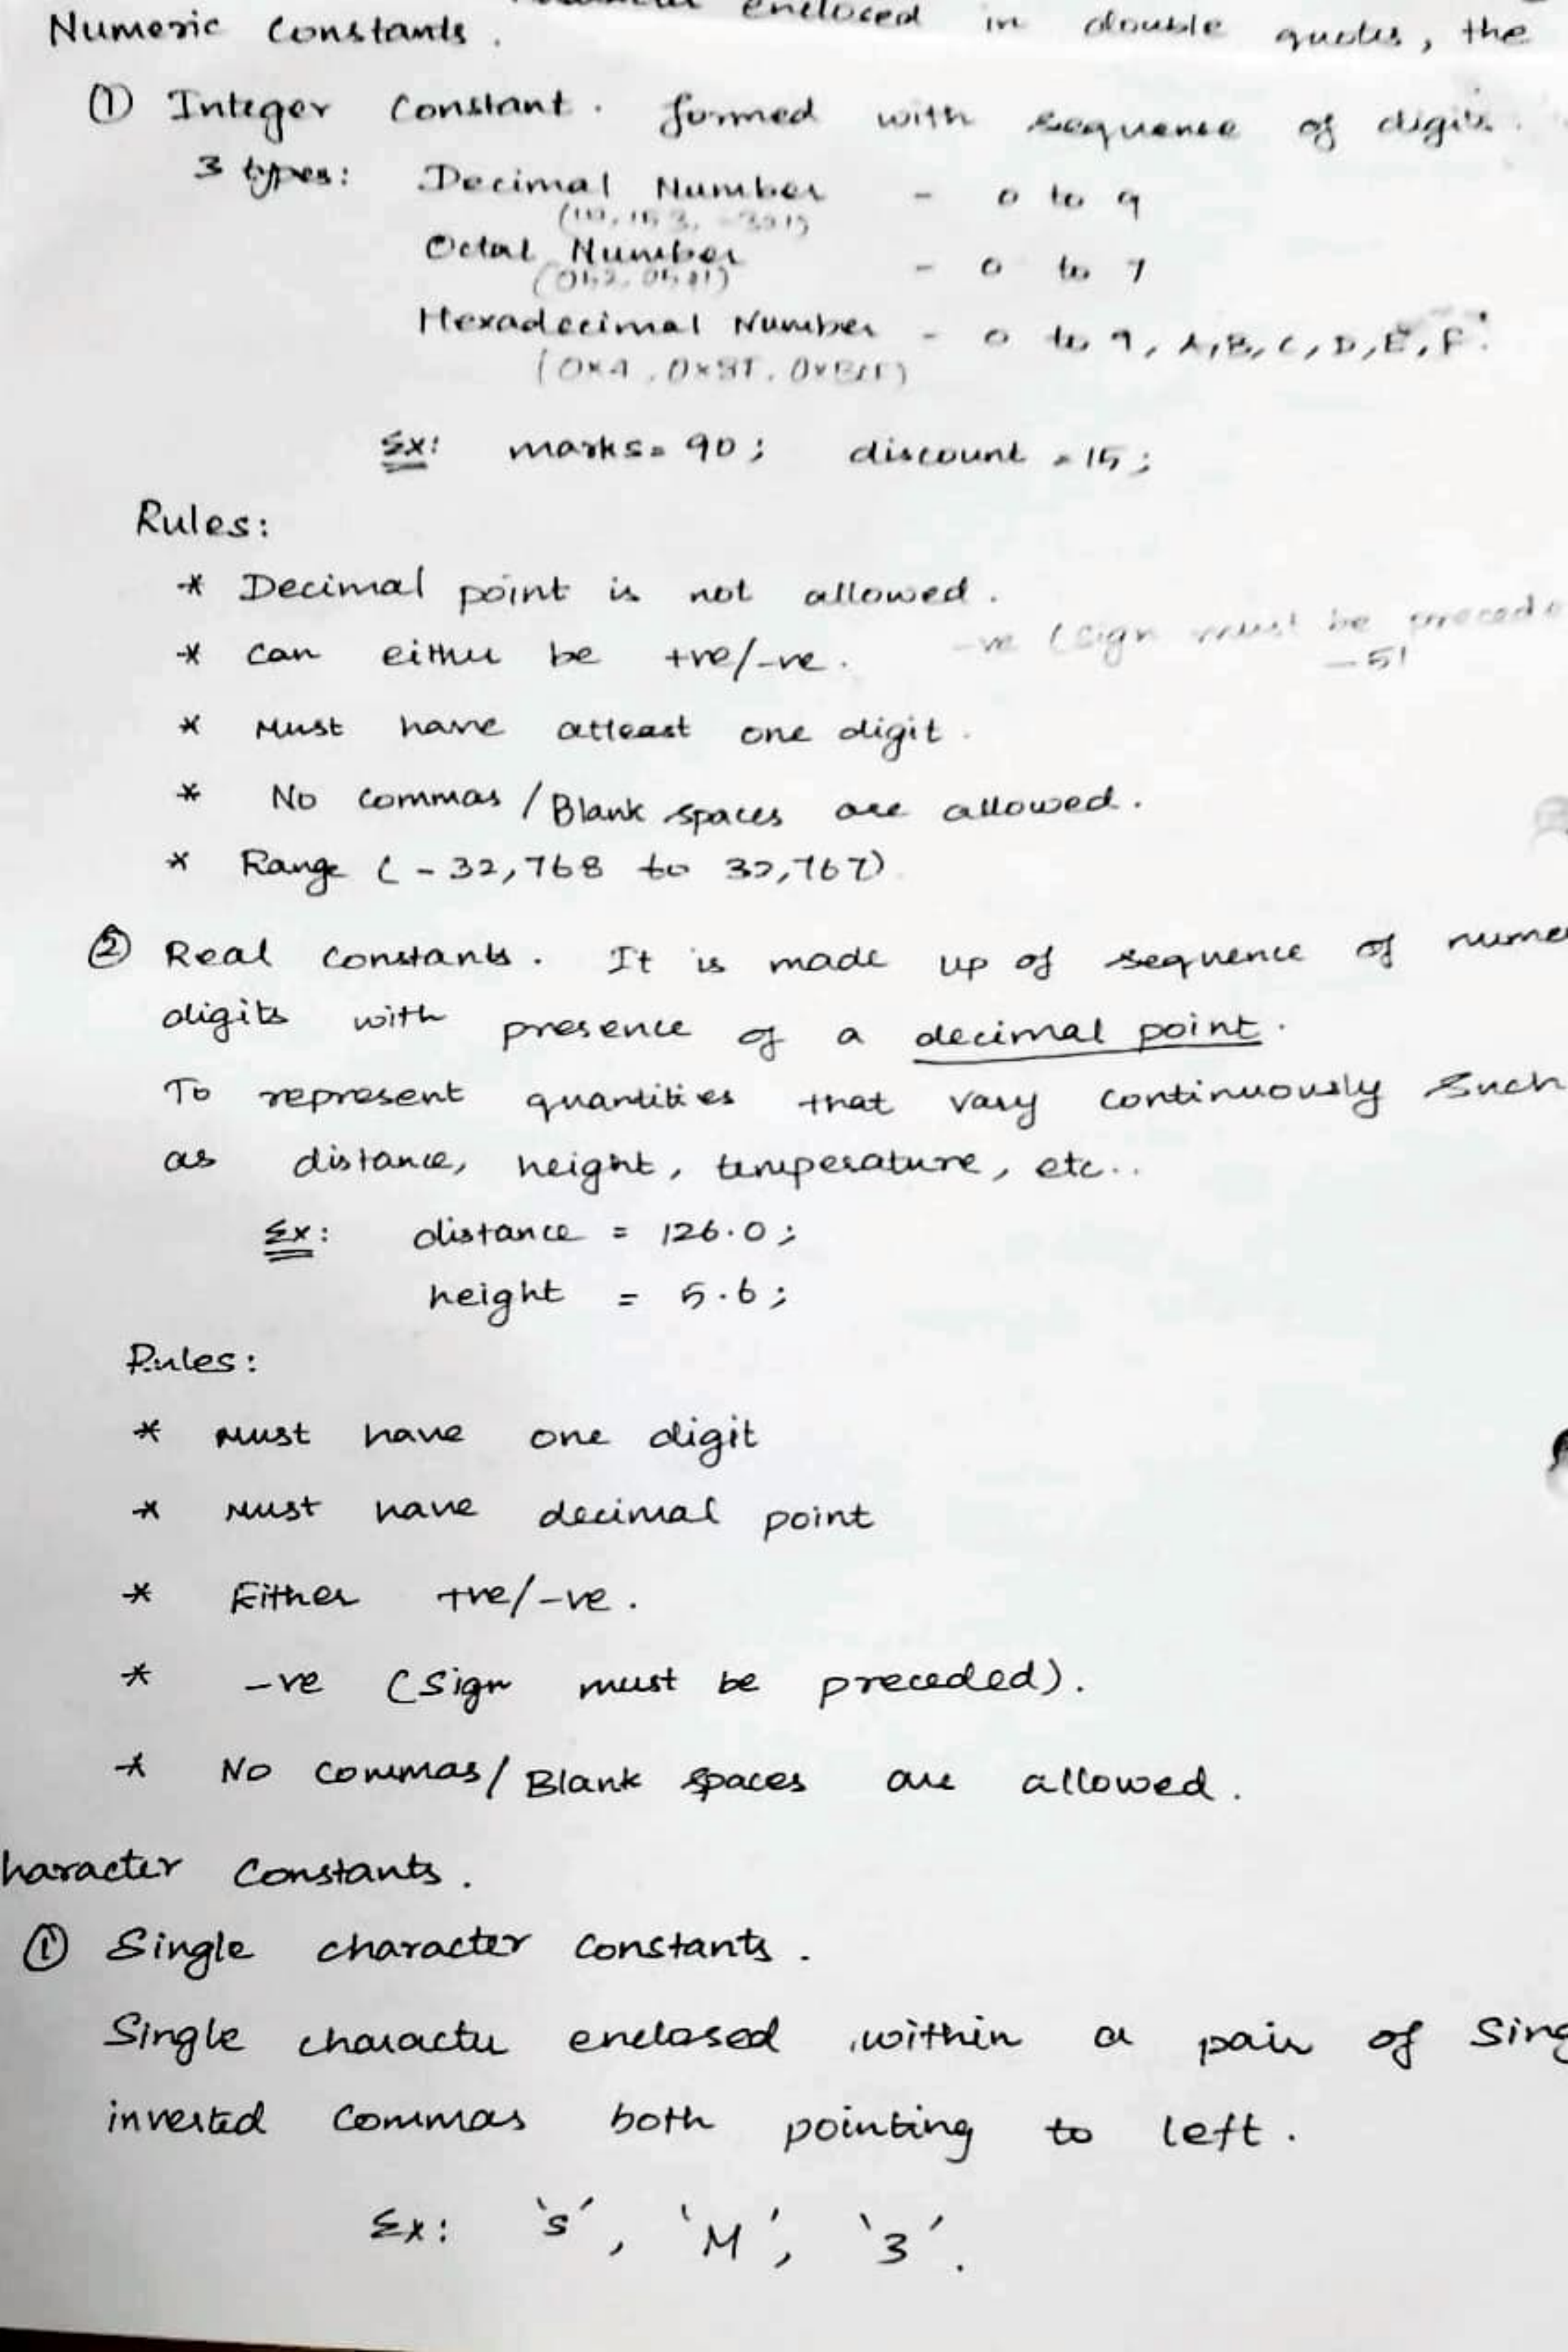 enclosed in double quotes, the
Numeric Constants.
① Integer Constant. formed with sequence of digits.
3 types: Decimal Number - 0 to 9
Octal Number - 0 to 7
Hexadecimal Number - 0 to 9, A,B,C,D,E,F.
(0x4, 
Ex: marks = 90; discount = 15;
Rules:
* Decimal point is not allowed.
* Can either be +ve/-ve. -ve (sign must be precede
-51
* Must have atleast one digit.
* No commas / Blank spaces are allowed.
* Range (-32,768 to 32,767)
② Real Constants. It is made up of sequence of nume
digits with presence of a decimal point.
To represent quantities that vary continuously such
as distance, height, temperature, etc..
Ex: distance = 126.0;
height = 5.6;
Rules:
* Must have one digit
* Must have decimal point
* Either +ve/-ve.
* -ve (Sign must be preceded).
* No commas/Blank spaces are allowed.
haracter Constants.
① Single character constants.
Single character enclosed within a pair of Sing
inverted commas both pointing to left.
Ex: 's', 'M', '3'.